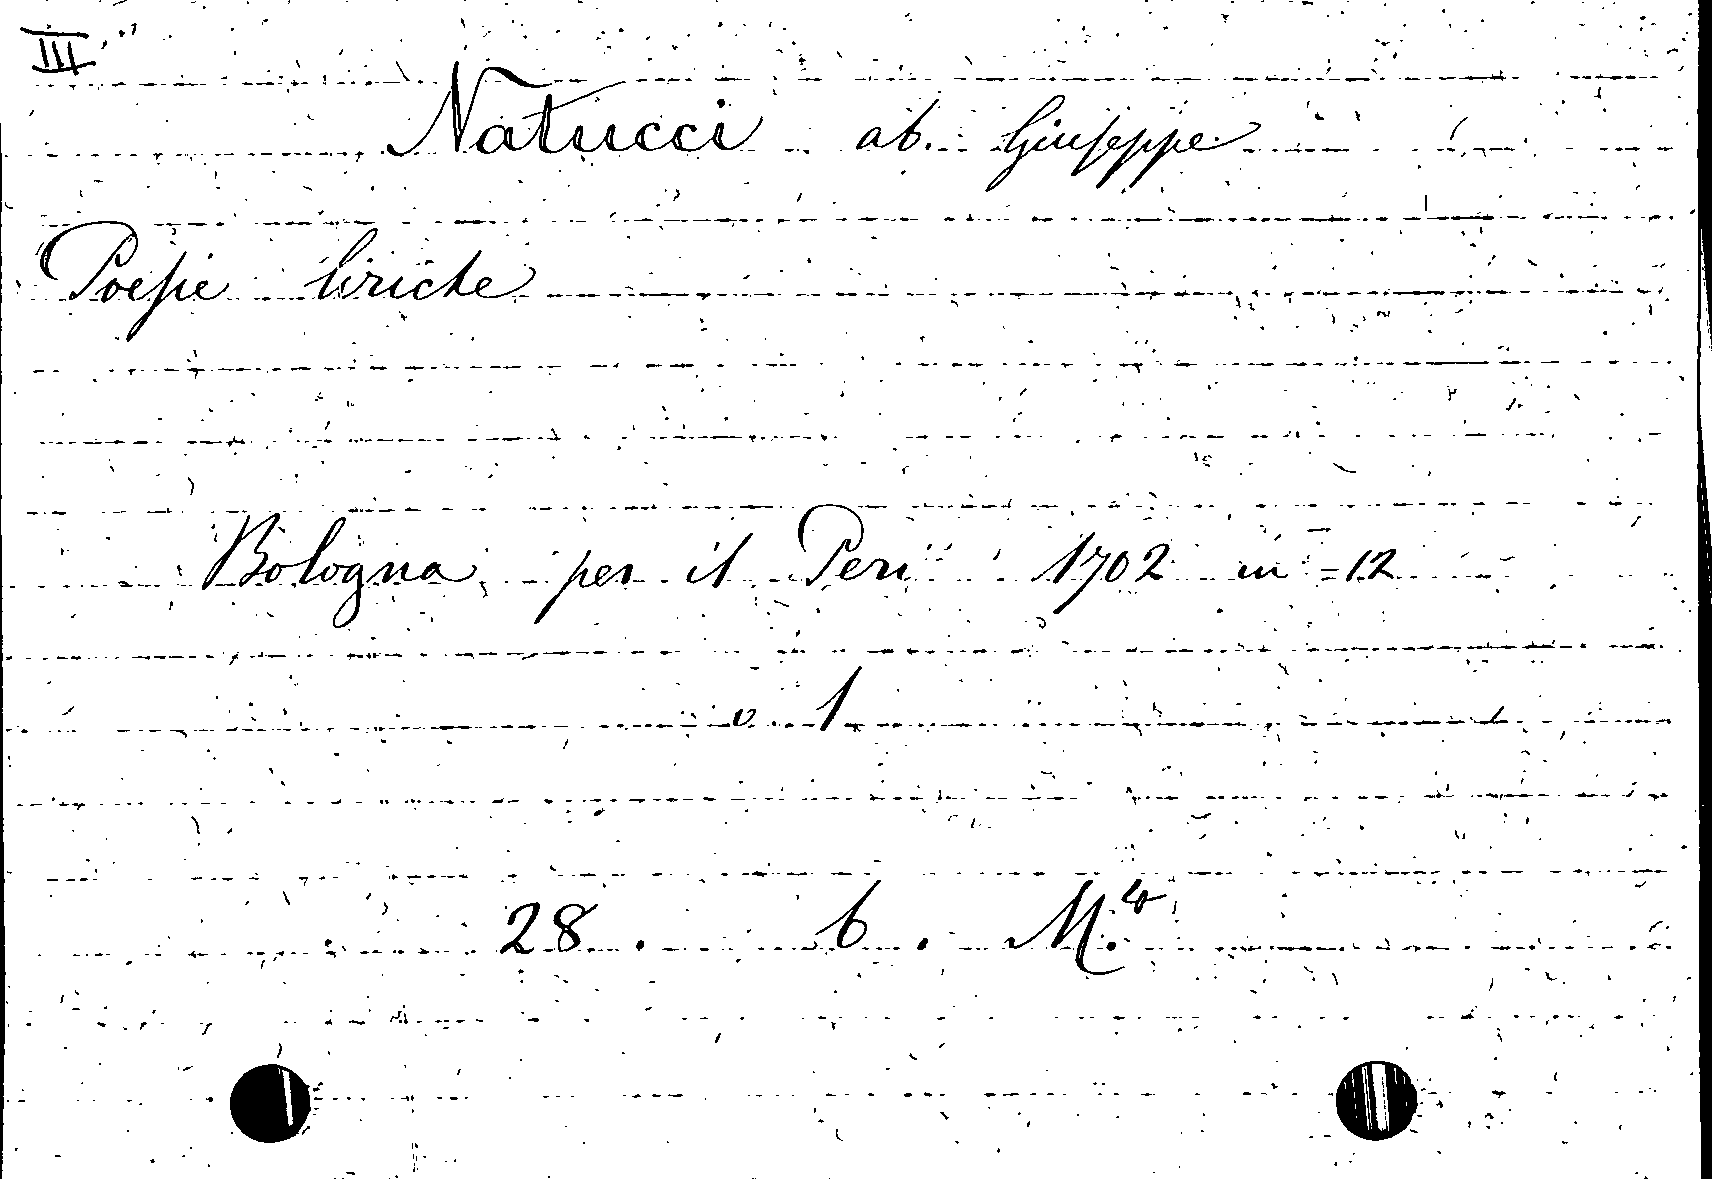 III
Natucci ab. Giuseppe
Poesie liriche
Bologna per il Peri 1702 in =12
v 1
28 . b . M.to